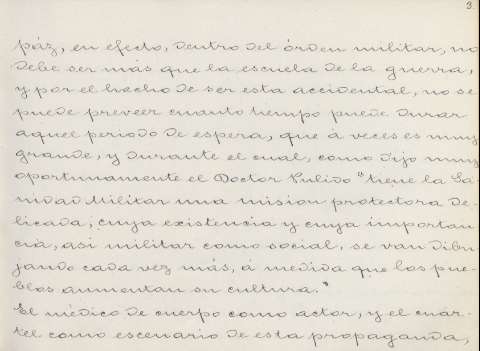 3.
páz, en efecto, dentro del órden militar, no
debe ser más que la escuela de la guerra,
y por el hecho de ser esta accidental, no se
puede preveer cuanto tiempo puede durar
aquel periodo de espera, que á veces es muy
grande, y durante el cual, como dijo muy
oportunamente el Doctor Pulido "tiene la Sa-
nidad Militar una mision protectora de-
licada; cuya existencia y cuya importan
cia, asi militar como social, se van dibu-
jando cada vez más, á medida que los pue-
blos aumentan su cultura."
El médico de cuerpo como actor, y el cuar-
tel como escenario de esta propaganda,